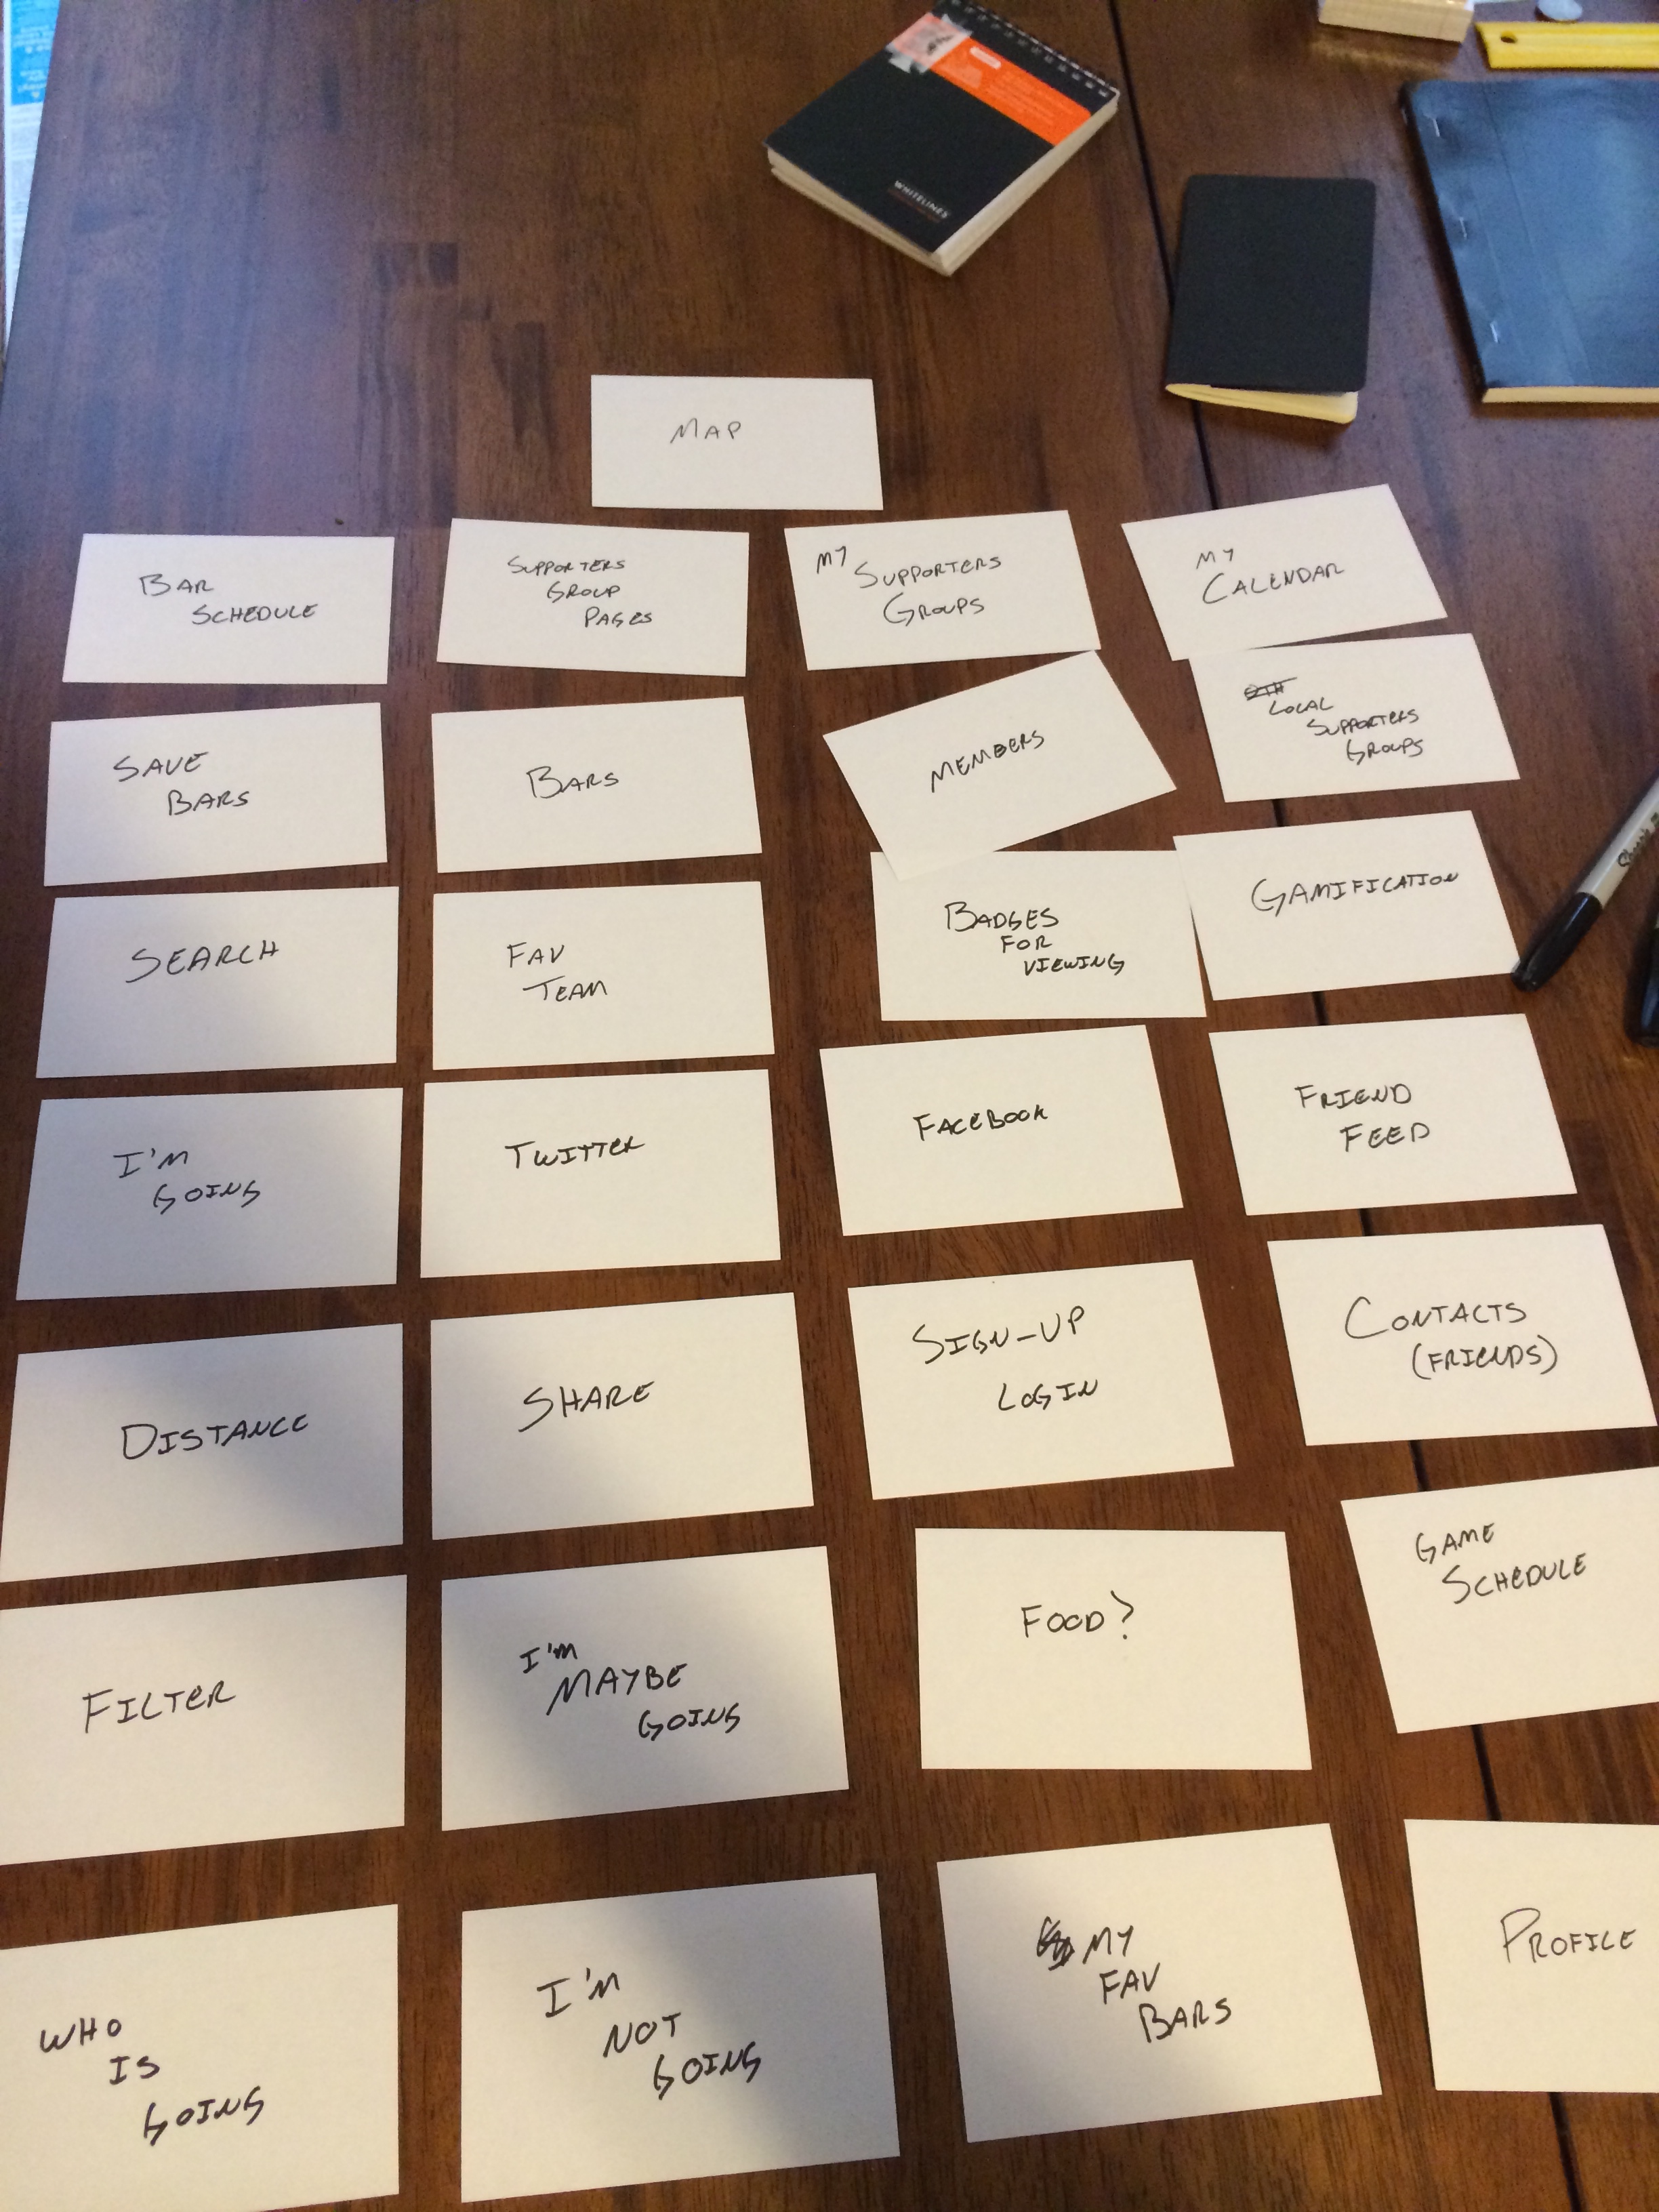 WHITELINES
MAP
BAR
SCHEDULE
SUPPORTERS
GROUP
PAGES
MY
SUPPORTERS
GROUPS
MY
CALENDAR
SAVE
BARS
BARS
MEMBERS
LOCAL
SUPPORTERS
GROUPS
SEARCH
FAV
TEAM
BADGES
FOR
VIEWING
GAMIFICATION
I'M
GOING
TWITTER
FACEBOOK
FRIEND
FEED
DISTANCE
SHARE
SIGN-UP
LOGIN
CONTACTS
(FRIENDS)
FILTER
I'M
MAYBE
GOING
FOOD?
GAME
SCHEDULE
WHO
IS
GOING
I'M
NOT
GOING
MY
FAV
BARS
PROFILE